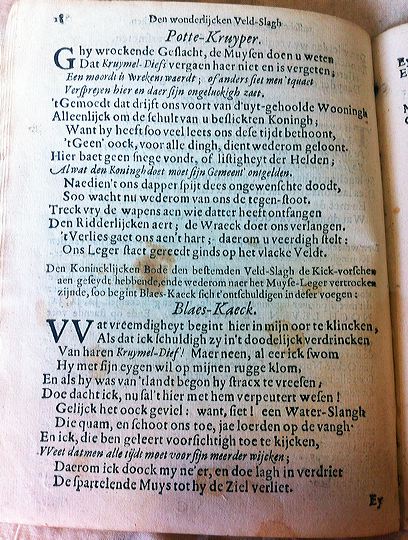 18 Den wonderlijcken Veld-Slagh
Potte-Kruyper.
Ghy wrockende Geslacht, de Muysen doen u weten
Dat Kruymel-Diefs vergaen haer niet en is vergeten;
Een moordt is wrekens waerdt; of anders siet men 't quaet
Verspreyen hier en daer sijn ongeluckigh zaet.
't Gemoedt dat drijft ons voort van d'uyt-gehoolde Wooningh
Alleenlijck om de schult van u beslickten Koningh;
Want hy heeft soo veel leets ons dese tijdt bethoont,
't Geen' oock, voor alle dingh, dient wederom geloont.
Hier baet geen snege vondt, of listigheyt der Helden;
Al wat den Koningh doet moet sijn Gemeent' ontgelden.
Nae dien't ons dapper spijt dees ongewenschte doodt,
Soo wacht nu wederom van ons de tegen-stoot.
Treck vry de wapens aen wie datter heeft ontfangen
Den Ridderlijcken aert; de Wraeck doet ons verlangen.
't Verlies gaet ons aen't hart: daerom u veerdigh stelt:
Ons Leger staet gereedt ginds op het vlacke Veldt.
Den Konincklijcken Bode den bestemden Veld-Slagh de Kick-vorschen
aen geseydt hebbende, ende wederom naer het Muyse-Leger vertrocken
zijnde, soo begint Blaes-Kaeck sich t'ontschuldigen in deser voegen:
Blaes-Kaeck.
VVat vreemdigheyt begint hier in mijn oor te klincken,
Als dat ick schuldigh zy in't doodelijck verdrincken
Van haren Kruymel-Dief! Maer neen, al eer ick swom
Hy met sijn eygen wil op mijnen rugge klom,
En als hy was van 'tlandt begon hy stracx te vreesen;
Doe dacht ick, nu sal't hier met hem verpeutert wesen!
Gelijck het oock geviel: want, siet! een Water-Slangh
Die quam, en schoot ons toe, jae loerden op de vangh
En ick, die ben geleert voorsichtigh toe te kijcken,
Weet datmen alle tijdt moet voor sijn meerder wijcken;
Daerom ick doock my ne'er, en doe lagh in verdriet
De spartelende Muys tot hy de Ziel verliet.
Ey